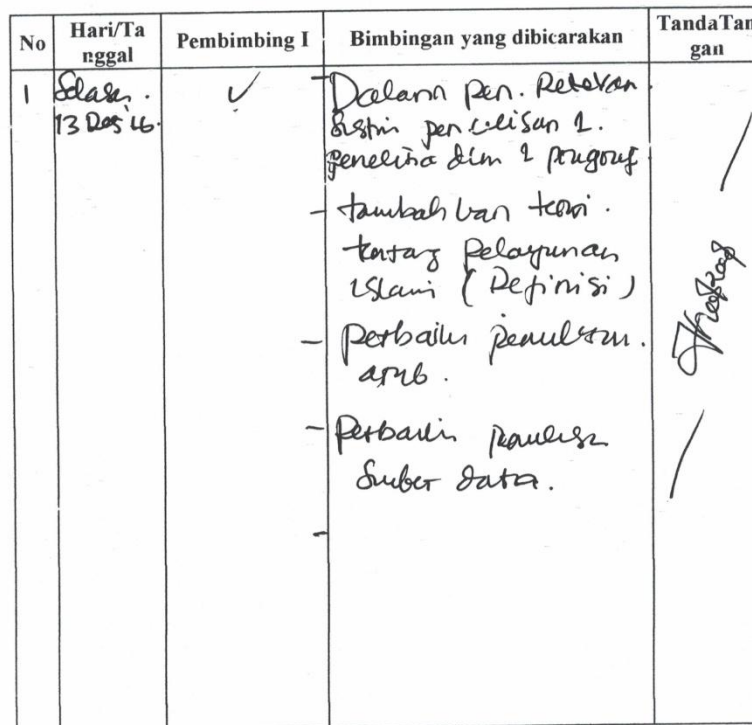 No
Hari/Ta
nggal
Pembimbing I
Bimbingan yang dibicarakan
TandaTan
gan
1
Selasa.
13 Des'16.
- Dalam pen. Relevan.
penulisan 1.
1
- tambahkan teori.
tentang Pelayanan
Islami (Definisi)
- Perbaiki penulisan.
arab.
- Perbaiki penulisan
Sumber data.
-